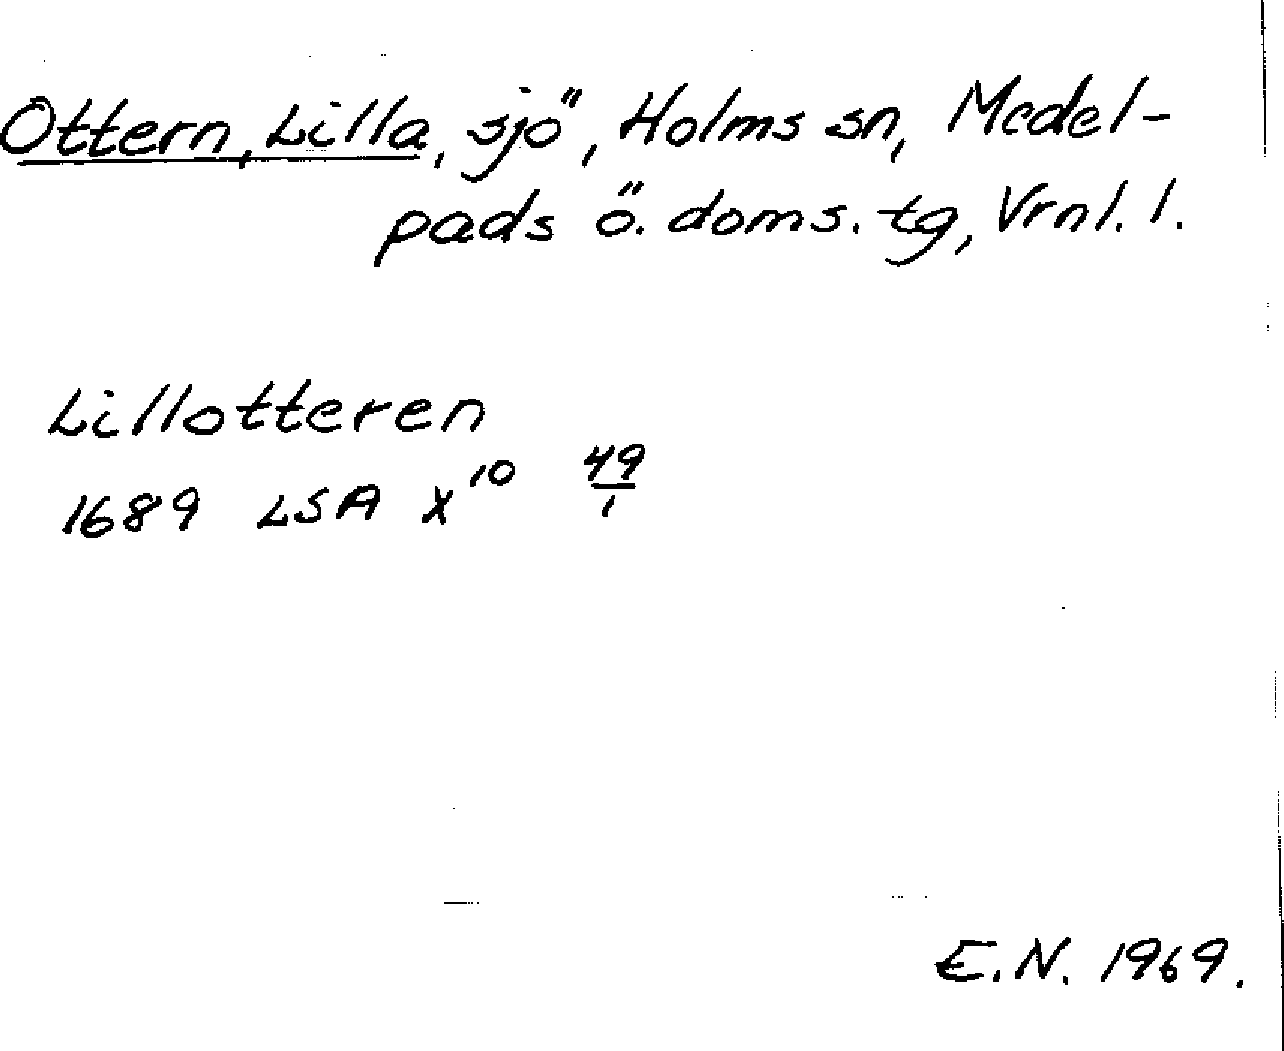 Ottern, Lilla, sjö, Holms sn, Medel-
pads ö. doms. tg, Vrnl. l.
Lillotteren
1689 LSA X¹⁰ 49/1
E.N. 1969.